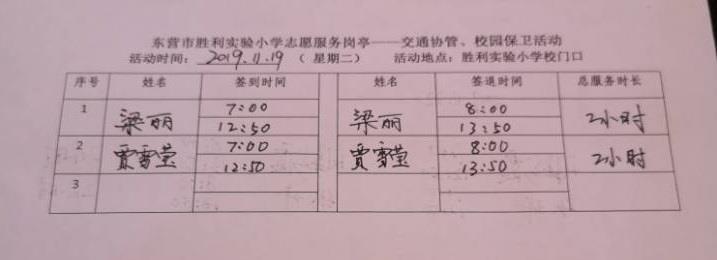 东营市胜利实验小学志愿服务岗亭——交通协管、校园保卫活动
活动时间：2019.11.19（星期二） 活动地点：胜利实验小学校门口
序号 姓名 签到时间 姓名 签退时间 总服务时长
1 梁丽 7:00 梁丽 8:00 2小时
12:50 13:50
2 贾雪莹 7:00 贾雪莹 8:00 2小时
12:50 13:50
3